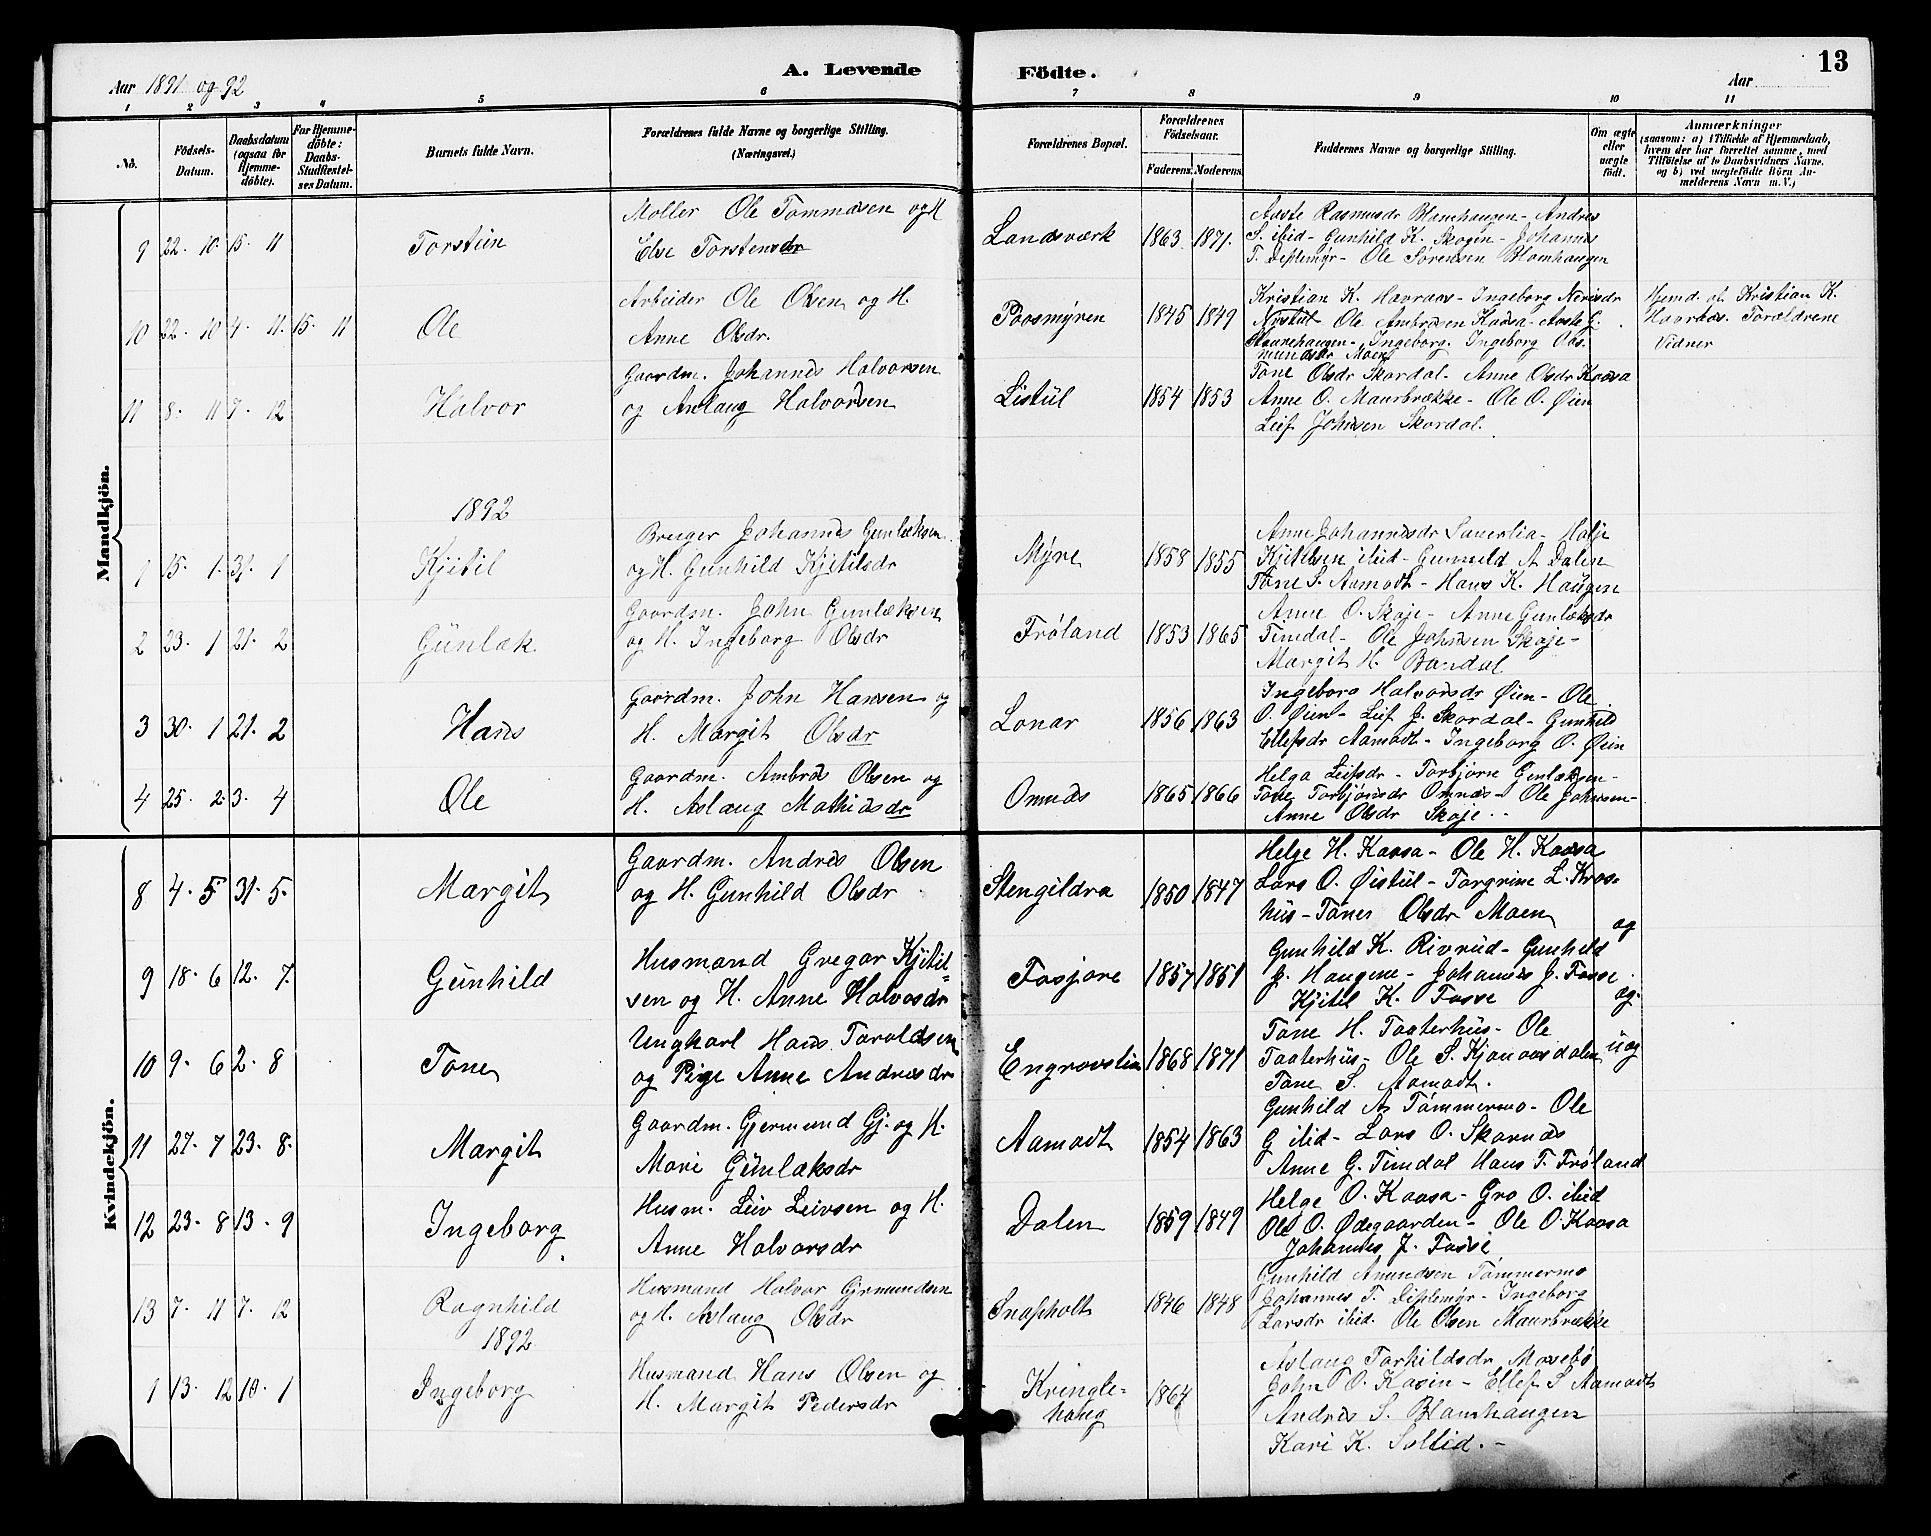 Aar 1891 og 92
A. Levende
Födte.
Aar
13
1 2 3 4 5 6 7 8 9 10 11
No.
Födsels-
Datum.
Daabsdatum
(ogsaa for
Hjemme-
döbte).
For Hjemme-
döbte:
Daabs-
Stadfæstel-
ses Datum.
Barnets fulde Navn.
Forældrenes fulde Navne og borgerlige Stilling.
(Næringsvei.)
Forældrenes Bopæl.
Forældrenes
Födselsaar.
Faderens. Moderens.
Faddernes Navne og borgerlige Stilling.
Om ægte
eller
uægte
födt.
Anmærkninger
(saasom: a) i Tilfælde af Hjemmedaab,
hvem der har forrettet samme, med
Tilföielse af to Daabsvidners Navne.
og b) ved uægtefödte Börn An-
melderens Navn m. V.)
Mandkjön.
9 22. 10. 15. 11 Torstein
Møller Ole Tommasen og H
Else Torstensdr
Landsværk 1863. 1871.
Aaste Rasmusdr Blomhaugen - Andres
S. ibid - Gunhild K. Skogen - Johannes
T. Deplemyr - Ole Sørensen Blomhaugen
10 22. 10 4. 11. 15. 11 Ole
Arbeider Ole Olsen og H.
Anne Olsdr.
Poosmyren 1845 1849
Kristian K. Haaraas - Ingeborg Nerisdr
Nystul - Ole Ambrosen Kaasa - Aaste G.
Ingeborg. Ingeborg Ols.
Moen
Hjemd. af Kristian K.
Haaraas. Forældrene
Vidner
11 8. 11 7. 12 Halvor
Gaardm. Johannes Halvorsen
og Aslaug Halvorsen
Listul 1854 1853
Tone Olsdr Skordal - Anne Olsdr Kaasa
Anne O. Maurbrække - Ole O. Øien
Leif Johnsen Skordal.
1892
1 15. 1. 31. 1 Kjetil
Bruger Johannes Gunlæksen
og H. Gunhild Kjetilsdr
Myre 1858 1855
Anne Johannesdr Sauerlia - Hølje
Kjetilsen ibid - Gunnild A Dalen
Tone S. Aamodt - Hans K. Haugen
2 23. 1 21. 2 Gunlæk
Gaardm. John Gunlæksen
og H. Ingeborg Olsdr
Frøland 1853 1865
Anne O. Skoje - Anne Gunlæksdr
Tinndal - Ole Johnsen Skoje -
Margit H. Bondal
3 30. 1 21. 2 Hans
Gaardm. John Hansen og
H. Margit Olsdr
Lonar 1856 1863
Ingeborg Halvorsdr Øien - Ole
O. Øien - Leif J. Skordal - Gunhild
Ellefsdr Aamodt - Ingeborg O. Øien
4 25. 2 3. 4 Ole
Gaardm. Ambros Olsen og
H. Aslaug Mathiasdr
Omnes 1865 1866
Helga Leifsdr - Torbjørn Gunlæksen -
Tone Torbjønsdr Omnes - Ole Johnsen -
Anne Olsdr Skoje.
Kvindekjön.
8 4. 5 31. 5. Margit
Gaardm. Andres Olsen
og H. Gunhild Olsdr
Stengildra 1850 1847
Helge H. Kaasa - Ole H. Kaasa
Lars O. Øistul - Torgrim L. Kros-
hus - Tone Olsdr Moen
og
9 18. 6 12. 7. Gunhild
Husmand Gregar Kjetil-
sen og H. Anne Halvosdr
Fosjore 1857 1851
Gunhild K. Rivrud - Gunhild
J. Haugene - Johannes J. Fosse
Kjetil K. Fosse
og.
10 9. 6 2. 8 Tone
Ungkarl Hans Taraldsen
og Pige Anne Andresdr
Engravslia 1868 1871
Tone H. Taaterhus - Ole
Taaterhus - Ole S. Kjonaasdalen
Tone S. Aamodt.
uog
11 27. 7 23. 8. Margit
Gaardm. Gjermund Gj. og H.
Mari Gunlæksdr
Aamodt 1854 1863
Gunhild A Tømmermo - Ole
G ibid - Lars O. Skornes
Anne G. Tinndal Hans T. Frøland
12 23. 8 13. 9 Ingeborg
Husm. Leiv Leivsen og H.
Anne Halvorsdr
Dalen 1859 1849
Helge O. Kaasa - Gro O. ibid
Ole O. Ødegaarden - Ole O. Kaasa
Johannes J. Fosse
13 7. 11 7. 12 Ragnhild
Husmand Halvor Gjermundsen
og H. Aslaug Olsdr
Snapholt 1846 1848
Gunhild Amundsen Tømmermo
Johannes T. Deplemyr - Ingeborg
Larsdr ibid. Ole Olsen Maurbrække
1892
1 13. 12 10. 1 Ingeborg
Husmand Hans Olsen og
H. Margit Pedersdr
Kringle-
haug 1864
Aslaug Torkildsdr Mosebø
John O. Kasin - Ellef S Aamodt
Andres S. Blomhaugen
Kari K. Sollid. -